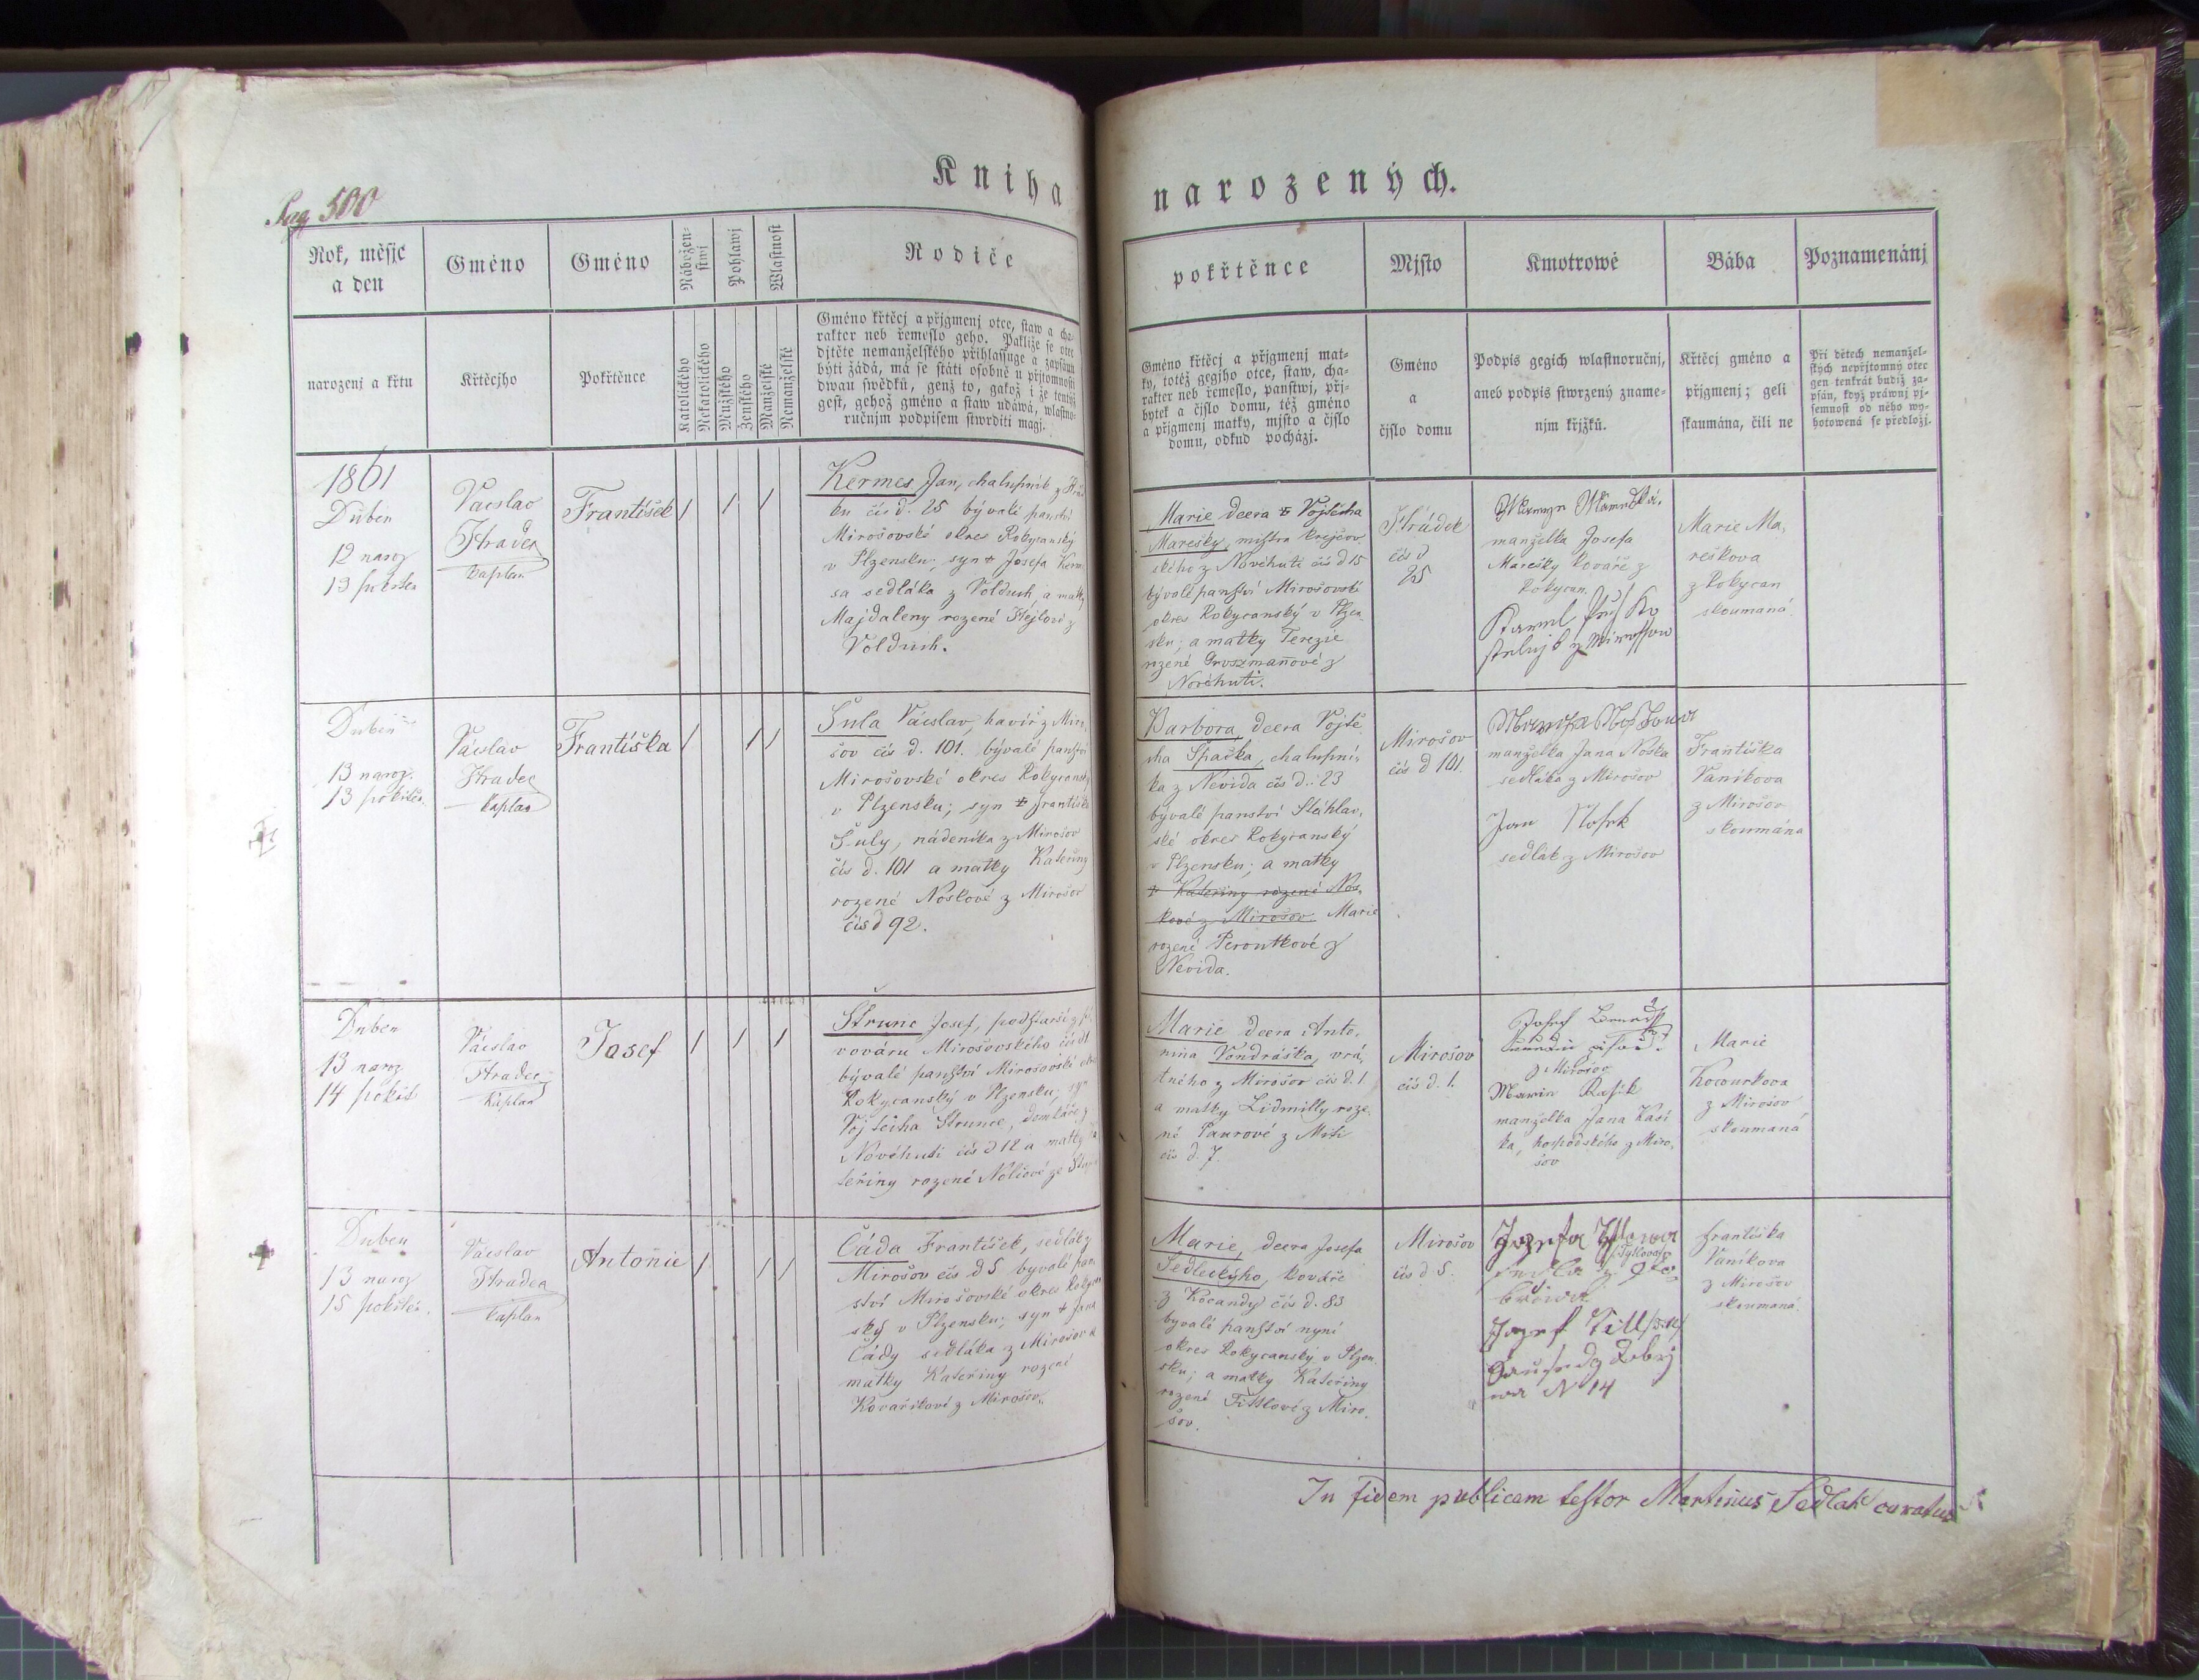 Pag 500
Kniha narozených.
Rok, měsjc
a den
Gméno
Gméno
Nábožen=
stwj
Pohlawj
Wlastnost
Rodiče
narozenj a křtu
Křtěcjho
Pokřtěnce
Katolického
Nekatolického
Mužského
Ženského
Manželské
Nemanželské
Gméno křtěcj a přjgmenj otce, staw a cha=
rakter neb řemeslo geho. Pakliže se otec
djtěte nemanželského přihlassuge a zapsánu
býti žádá, má se státi osobně u přjtomnosti
dwau swědků, genž to, gakož i že tentýž
gest, gehož gméno a staw udáwá, wlastno=
ručnjm podpisem stwrditi magj.
pokřtěnce
Mjsto
Kmotrowé
Bába
Poznamenánj
Gméno křtěcj a přjgmenj mat=
ky, totéž gegjho otce, staw, cha=
rakter neb řemeslo, panstwj, přj=
bytek a čjslo domu, též gméno
a přjgmenj matky, mjsto a čjslo
domu, odkud pocházj.
Gméno
a
čjslo domu
Podpis gegich wlastnoručnj,
aneb podpis stwrzený zname=
njm křjžků.
Křtěcj gméno a
přjgmenj; geli
skaumána, čili ne
Při dětech nemanžel=
ských nepřjtomný otec
gen tenkrát budiž za=
psán, když práwnj pj=
semnost od něho wy=
hotowená se předložj.
1861
Duben
12 naroz
13 pokřtěn
Václav
Hradec
kaplan
František
/ / /
Kermes Jan, chalupník z Hrád
ku čís d. 25 bývalé panství
Mirošovské okres Rokycanský
v Plzensku; syn + Josefa Kerme
sa sedláka z Volduch a matky
Majdaleny rozené Hejlové z
Volduch.
Marie dcera + Vojtěcha
Marešky, mistra krejčov
ského z Novéhuti čís d 15
bývalé panství Mirošovské
okres Rokycanský v Plzen
sku; a matky Terezie
rozené Groszmaňové z
Novéhuti.
Hrádek
čís d
25
manželka Josefa
Marešky kováře z
Rokycan
Marie Ma,
reškova
z Rokycan
skoumaná
Duben
13 naroz.
13 pokřtěn.
Václav
Hradec
kaplan
Františka
/ / /
Šula Václav, havíř z Miro,
šov čís d. 101. bývalé panství
Mirošovské okres Rokycanský
v Plzensku; syn + Františka
Šuly, nádeníka z Mirošov
čís d. 101 a matky Kateřiny
rozené Noskové z Mirošov
čís d 92.
Barbora dcera Vojtě
cha Špačka, chalupní,
ka z Nevida čís d.: 23
bývalé panství Štáhlav,
ské okres Rokycanský
v Plzensku; a matky
+ Kateřiny rozené Nos,
kové z Mirošov. Marie
rozené Peroutkové z
Nevida.
Mirošov
čís d 101.
manželka Jana Noska
sedláka z Mirošov
Jan Nosek
sedlák z Mirošov
Františka
Vaníkova
z Mirošov
skoumána
Duben
13 naroz
14 pokřt
Václav
Hradec
kaplan
Josef
/ / /
Štrunc Josef, podstarší z pi
vováru Mirošovského čís d 1
bývalé panství Mirošovské okres
Rokycanský v Plzensku; syn
Vojtěcha Štrunce, domkáře z
Novéhuti čís d 12 a matky Ka
teřiny rozené Nolčové ze
Marie dcera Anto,
nína Vondráška, vrá,
tného z Mirošov čís d. 1
a matky Lidmilly roze
né Paurové z Mití
čís d. 7.
Mirošov
čís d. 1.
Josef
z Mirošov
Maria Kasik
manželka Jana Kasí
ka, hospodského z Miro,
šov
Marie
Kocourkova
z Mirošov
skoumaná
Duben
13 naroz
15 pokřtěn.
Václav
Hradec
kaplan
Antonie
/ / /
Čáda František, sedlák z
Mirošov čís d 5 bývalé pan
ství Mirošovské okres Rokycan
ský v Plzensku; syn + Jana
Čády sedláka z Mirošov a
matky Kateřiny rozené
Kovaříkové z Mirošov.
Marie, dcera Josefa
Sedleckýho, kováře
z Kocandy čís d. 83
bývalé panství nyní
okres Rokycanský v Plzen
sku; a matky Kateřiny
rozené Tittlové z Miro,
šov.
Mirošov
čís d 5.
Jozefa
Jozef Till
N 14
Františka
Vaníkova
z Mirošov
skoumaná.
In fidem publicam testor Martinus Sedlak curatus